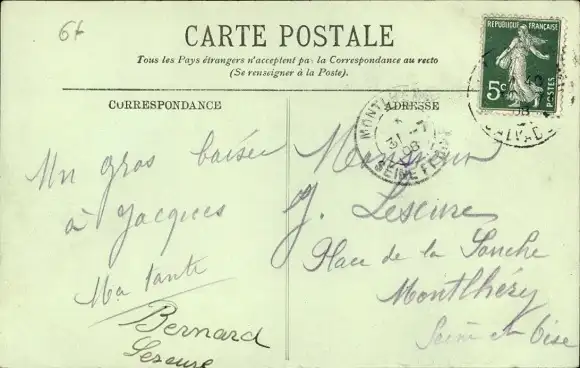 64
CARTE POSTALE
Tous les Pays étrangers n'acceptent pas la Correspondance au recto
(Se renseigner à la Poste).
CORRESPONDANCE
ADRESSE
REPUBLIQUE FRANÇAISE
5c
POSTES
CALVADOS
MONTLHERY
31 -7
08
SEINE ET OISE
Un gros baiser
à Jacques
Ma tante
Bernard
Leseure
Monsieur
J. Leseure
Place de la Souche
Montlhéry
Seine et Oise